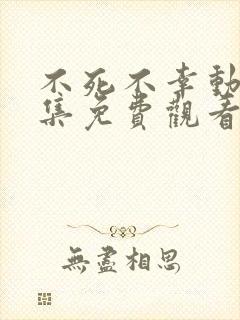 不死不幸動
集免費觀看
無盡相思